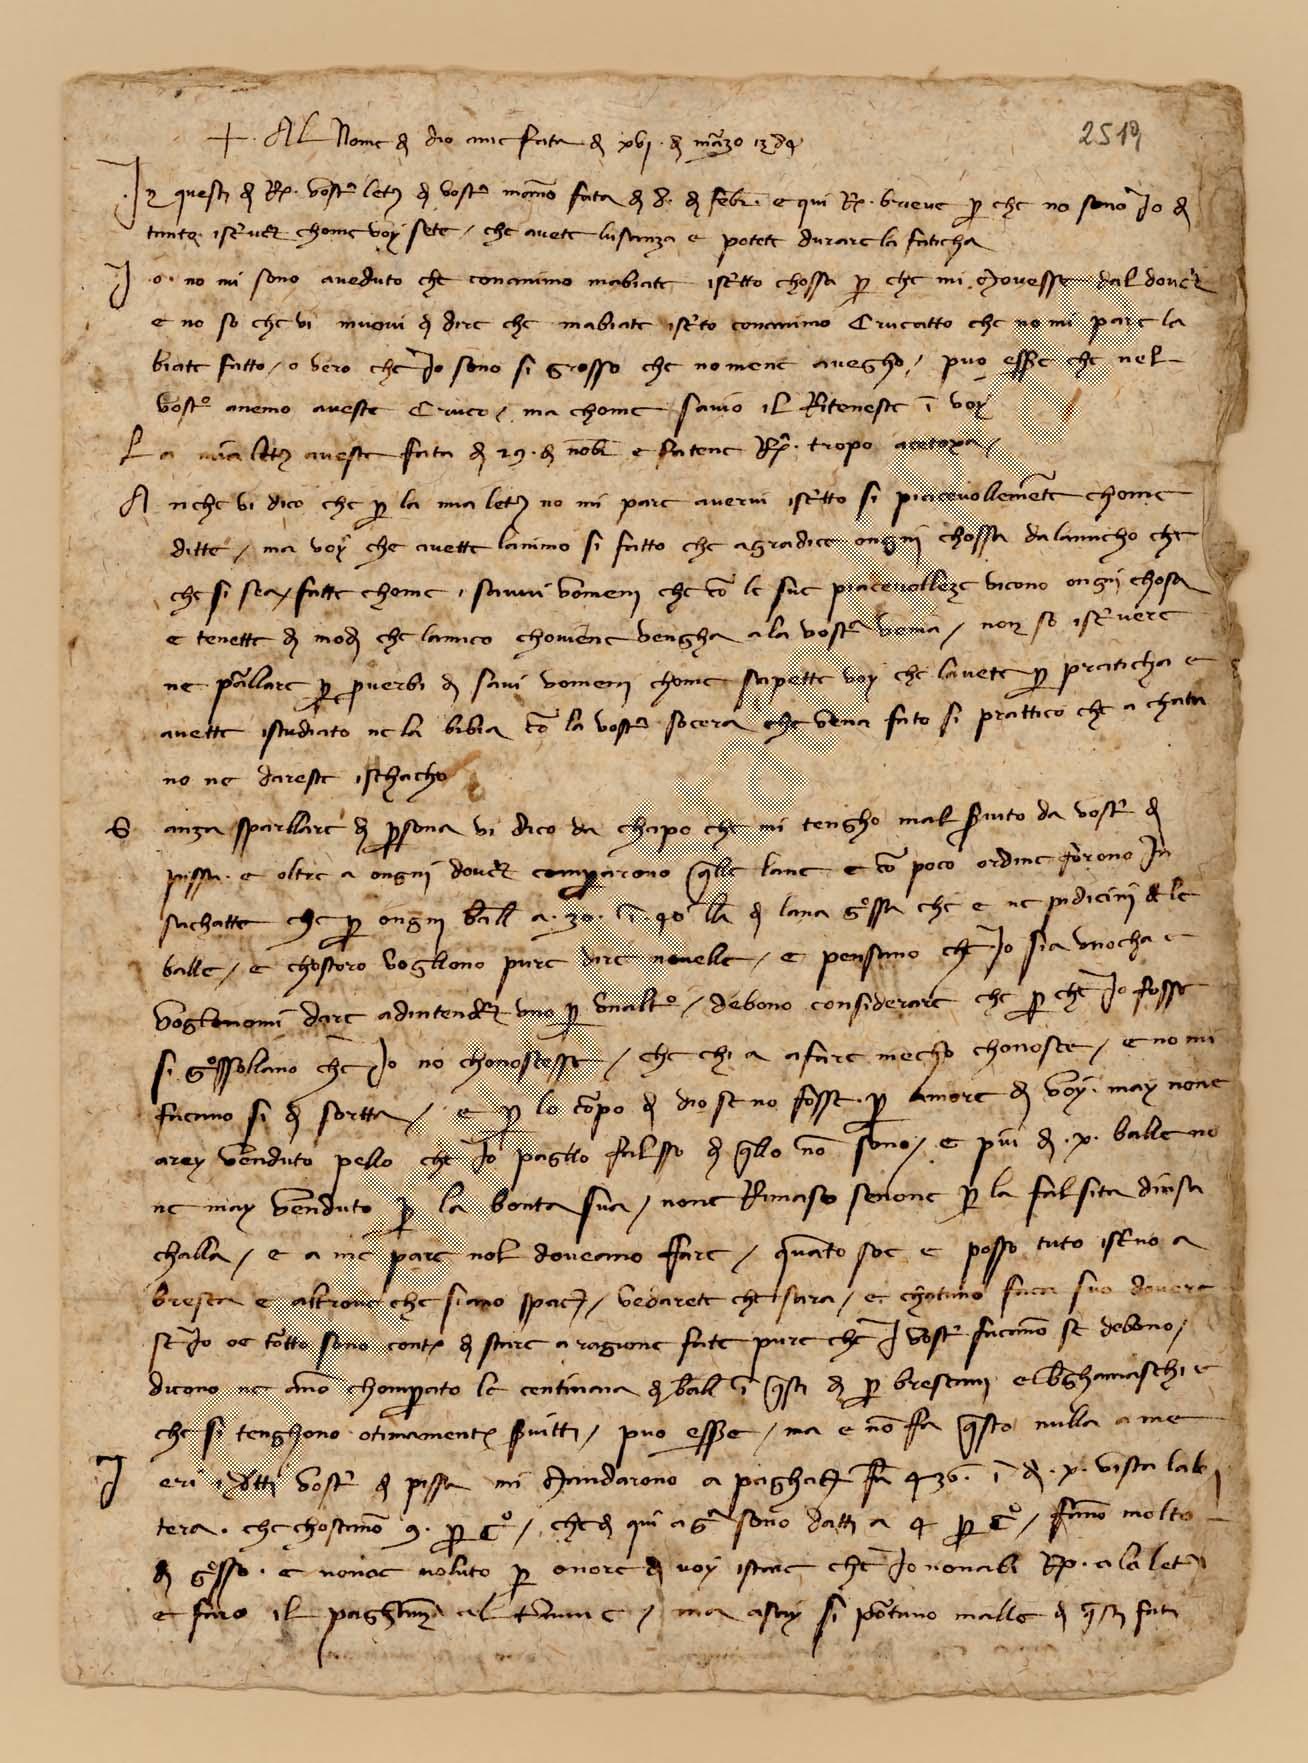 + Al Nome di dio ame fata di xvj di marzo
2519
In questi di R. vostra letera di vostra mano fata di 8. di febr. e qui R. brieve per che no sono Io di
tanto iscriver chome voy sete / che avete lusanza e potete durare la faticha
Io no mi sono aveduto che conanimo mabiate iscritto chossa per che mi movesse dal dover
e no so che vi muovi di dire che mabiate iscrito conanimo Crucatto che no mi pare la
biate fatto / o vero che Io sono si grosso che nomene avegho / puo essere che nel
vostro anemo aveste Cruco / ma chome savio il Riteneste i voy
La mia letera aveste fata di 29. di novbr e fatene Rx. tropo
Anche vi dico che per la mia letera no mi pare avervi iscritto si piacevollemente chome
ditte / ma voy che avette lanimo si fatto che agradice ongni chossa dalamicho che
che si sea / fatte chome i savvi vomeni che co le sue piacevolleze vicono ongni chosa
e tenette di modi che lamico chonviene vengha a la vostra / non so iscrivere
ne parllare per proverbi di savi vomeni chome sapette voy che lavete per praticha e
avette istudiato ne la bibia co la vostra socera che vena fato si prattico che a chata
no ne dareste ischacho
Sanza sparllare di persona vi dico da chapo che mi tengho mal servito da vostri di
pissa. e oltre a ongni dover comperarono quelle lane e co poco ordine forono In
sachatte che per ongni ball a. 30. i 40 lb di lana grossa che e ne pidicini de le
balle / e chostoro vogliono pure dire novelle / e pensano che Io sia unocha e
voglionomi dare adintender uno per unaltro / debono considerare che per che Io fosse
si grossollano che Io no chonoscesse / che chi a afare mecho chonosce / e no mi
facano si di sortta / e per lo corpo di dio se no fosse per amore di voy may none
arey venduto pello che Io paglio falsso di quello no sono / e piu di .x. balle no
ne may venduto per la bonta sua / none Rimaso senone per la falsita divisa
challa / e a me pare nol doveano ffare / quanto soe e posso tuto iscrivo a
bresca e altrove che siano spac / vedarete che sara / e chatuno faca suo dovere
se Io oe torto sono contento di stare a ragione fate pure che I vostri facano se debono /
dicono ne ano chomperato le centinara di ball i questi di per bresciani e berghamaschi e
che si tenghono otimamente servitti / puo essere / ma e no fa questo nulla a me
Ieri i detti vostri di pissa mi mandarono a paghare fl 436. i di .x. vista la le
tera. che chostano 9. per Co / che di qui a gra sono datti a 4 per Co / fano molto
di grosso. e nonoe voluto per onore di voy istare che Io nonabi Rx. a la letera
e faro il paghamento al termine / ma asay si portano malle di questi fati